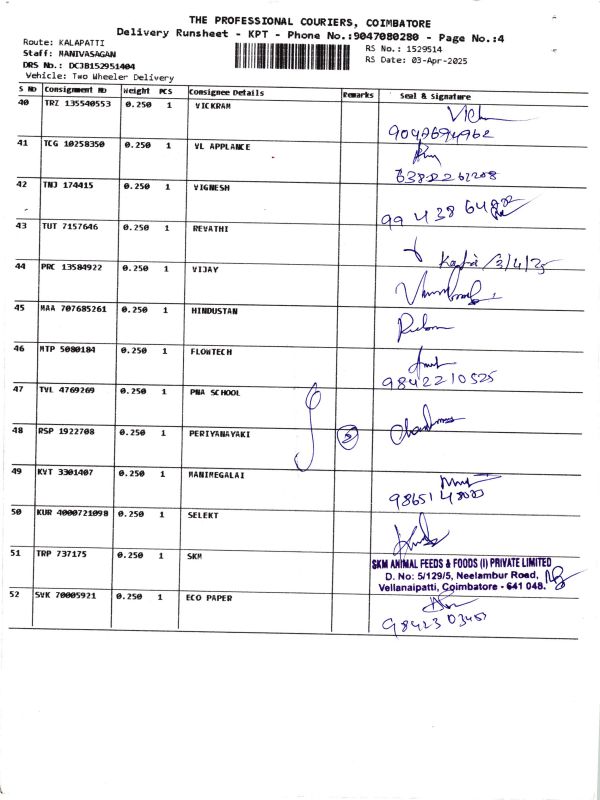 THE PROFESSIONAL COURIERS, COIMBATORE
Delivery Runsheet - KPT - Phone No.:9047080280 - Page No.:4
Route: KALAPATTI
RS No.: 1529514
Staff: MANIVASAGAN
RS Date: 03-Apr-2025
DRS No.: DCJB152951404
Vehicle: Two Wheeler Delivery
S No Consignment No Weight PCS Consignee Details Remarks Seal & Signature
40 TRZ 135540553 0.250 1 VICKRAM
41 TCG 10258350 0.250 1 VL APPLANCE
6382262208
42 TNJ 174415 0.250 1 VIGNESH
43 TUT 7157646 0.250 1 REVATHI
3/4/25
44 PRC 13584922 0.250 1 VIJAY
45 MAA 707685261 0.250 1 HINDUSTAN
46 MTP 5080184 0.250 1 FLOWTECH
9842210525
47 TVL 4769269 0.250 1 PNA SCHOOL
48 RSP 1922708 0.250 1 PERIYANAYAKI
49 KVT 3301407 0.250 1 MANIMEGALAI
50 KUR 4000721098 0.250 1 SELEKT
51 TRP 737175 0.250 1 SKM
SKM ANIMAL FEEDS & FOODS (I) PRIVATE LIMITED
D. No: 5/129/5, Neelambur Road,
Vellanaipatti, Coimbatore - 641 048.
52 SVK 70005921 0.250 1 ECO PAPER